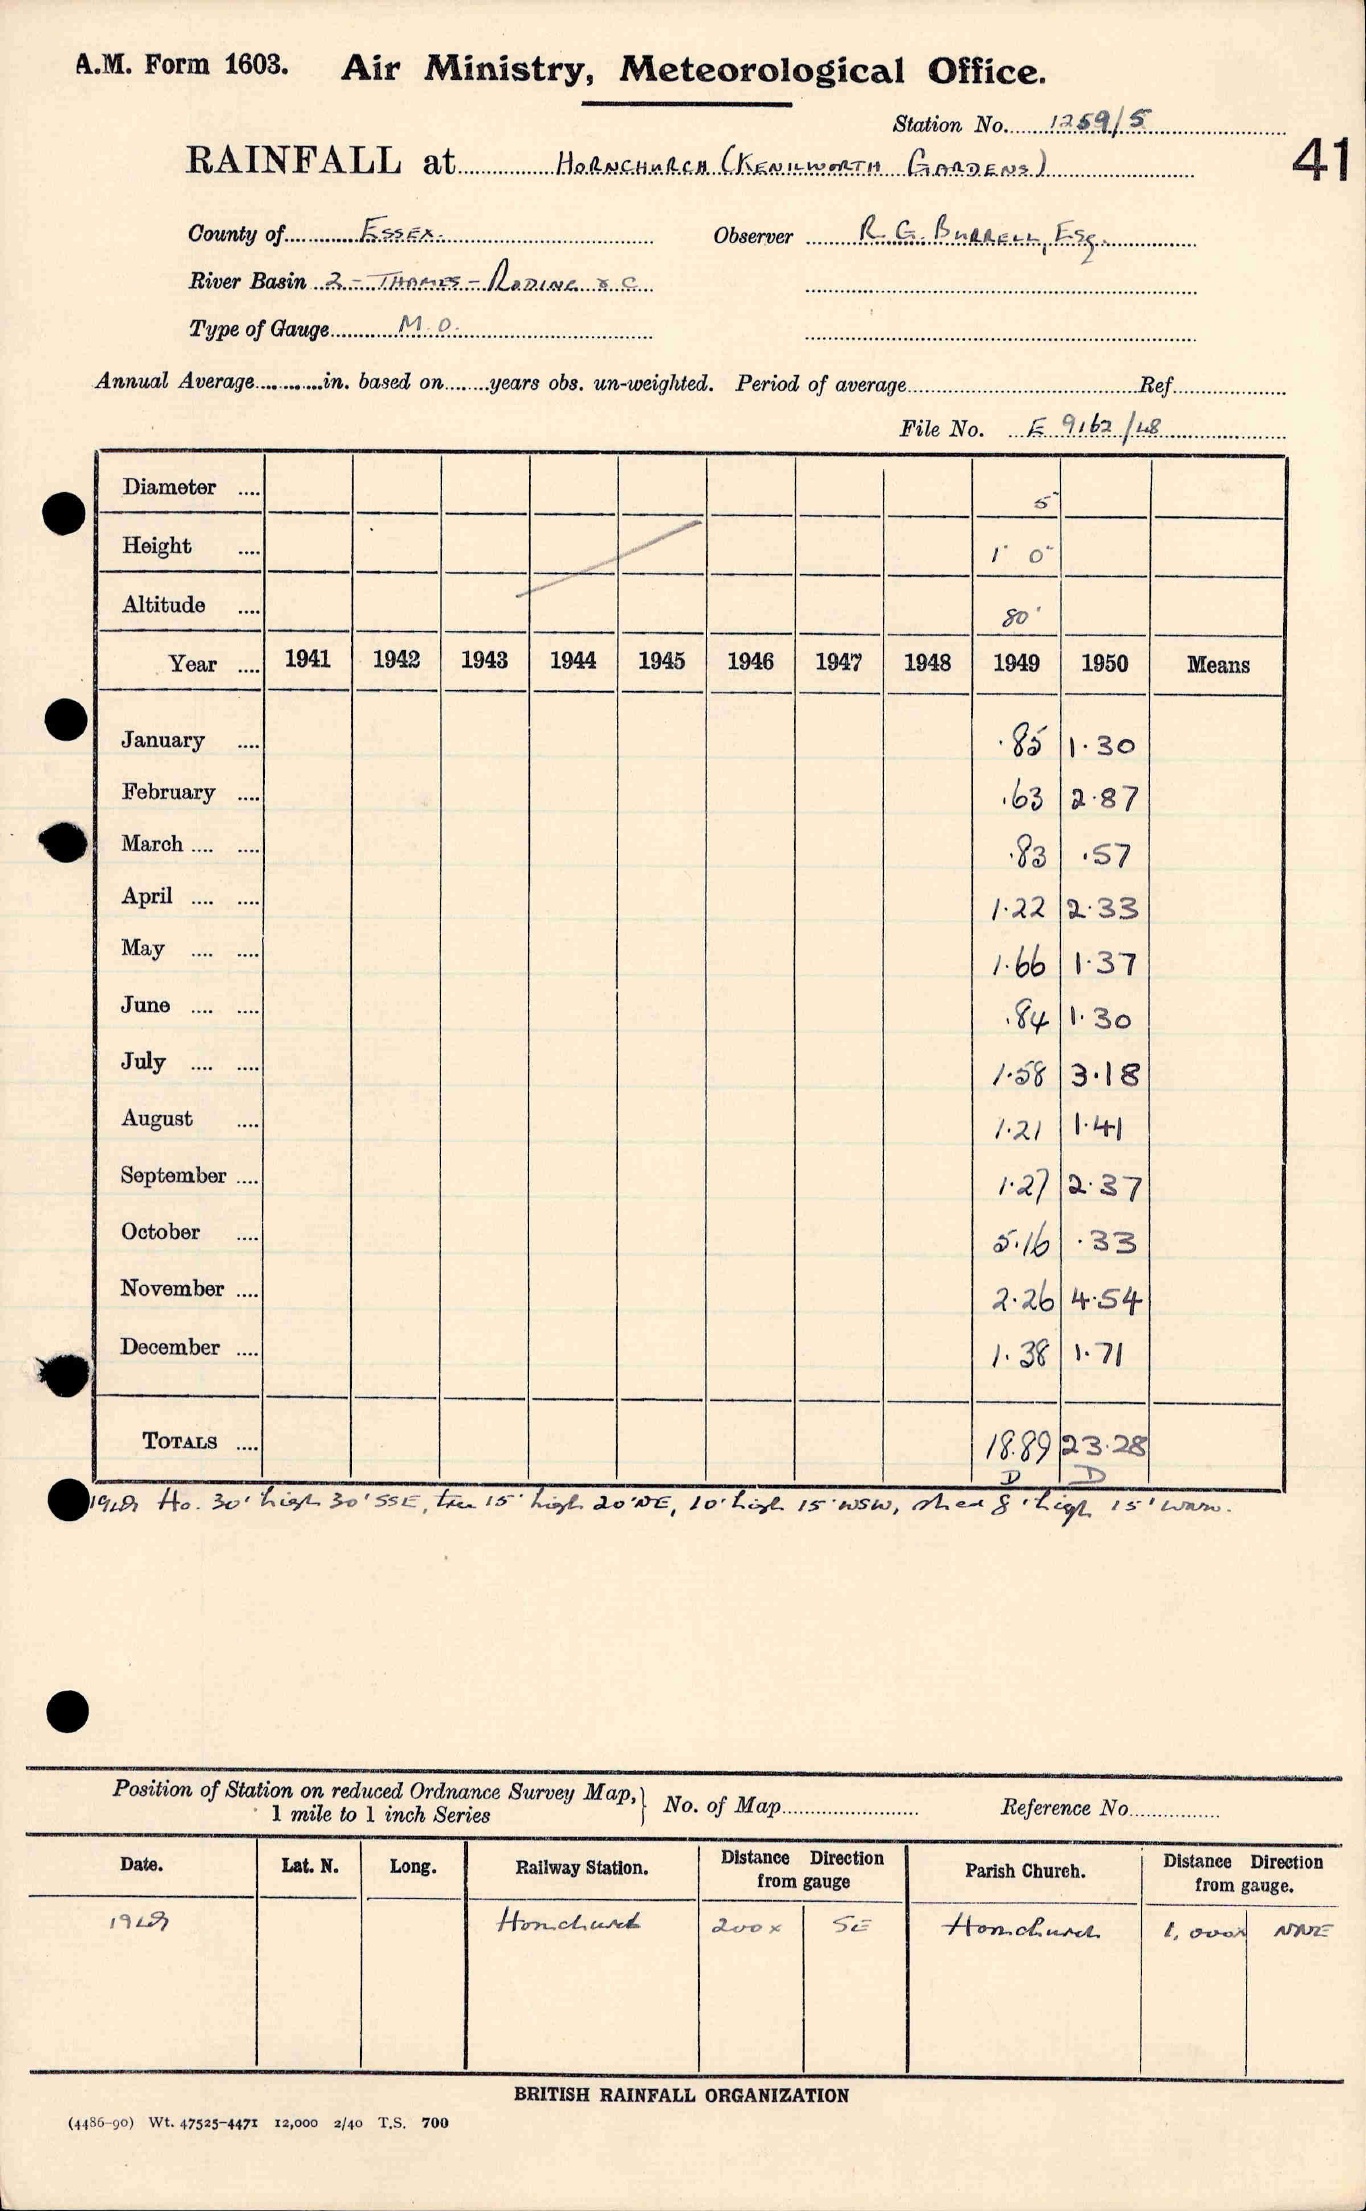 A.M. Form 1603. Air Ministry, Meteorological Office.
Station No. 1259/5
RAINFALL at HORNCHURCH (KENILWORTH GARDENS) 41
County of ESSEX. Observer R. G. BURRELL, Esq.
River Basin 2 - THAMES - RODING &C
Type of Gauge M.O.
Annual Average in. based on years obs. un-weighted. Period of average Ref
File No. E 9162/48
Diameter .... 5"
Height .... 1' 0"
Altitude .... 80'
Year .... 1941 1942 1943 1944 1945 1946 1947 1948 1949 1950 Means
January .... .85 1.30
February .... .63 2.87
March .... .... .83 .57
April .... .... 1.22 2.33
May .... .... 1.66 1.37
June .... .... .84 1.30
July .... .... 1.58 3.18
August .... 1.21 1.41
September .... 1.27 2.37
October .... 5.16 .33
November .... 2.26 4.54
December .... 1.38 1.71
TOTALS .... 18.89 23.28
D D
Ho. 30' high 30' SSE, tree 15' high 20' NE, 10' high 15' WSW, shed 8' high 15' WNW.
Position of Station on reduced Ordnance Survey Map, } No. of Map Reference No.
1 mile to 1 inch Series
Date. Lat. N. Long. Railway Station. Distance Direction from gauge Parish Church. Distance Direction from gauge.
Hornchurch 200x SE Hornchurch 1,000x NNE
BRITISH RAINFALL ORGANIZATION
(4486-90) Wt. 47525-4471 12,000 2/40 T.S. 700